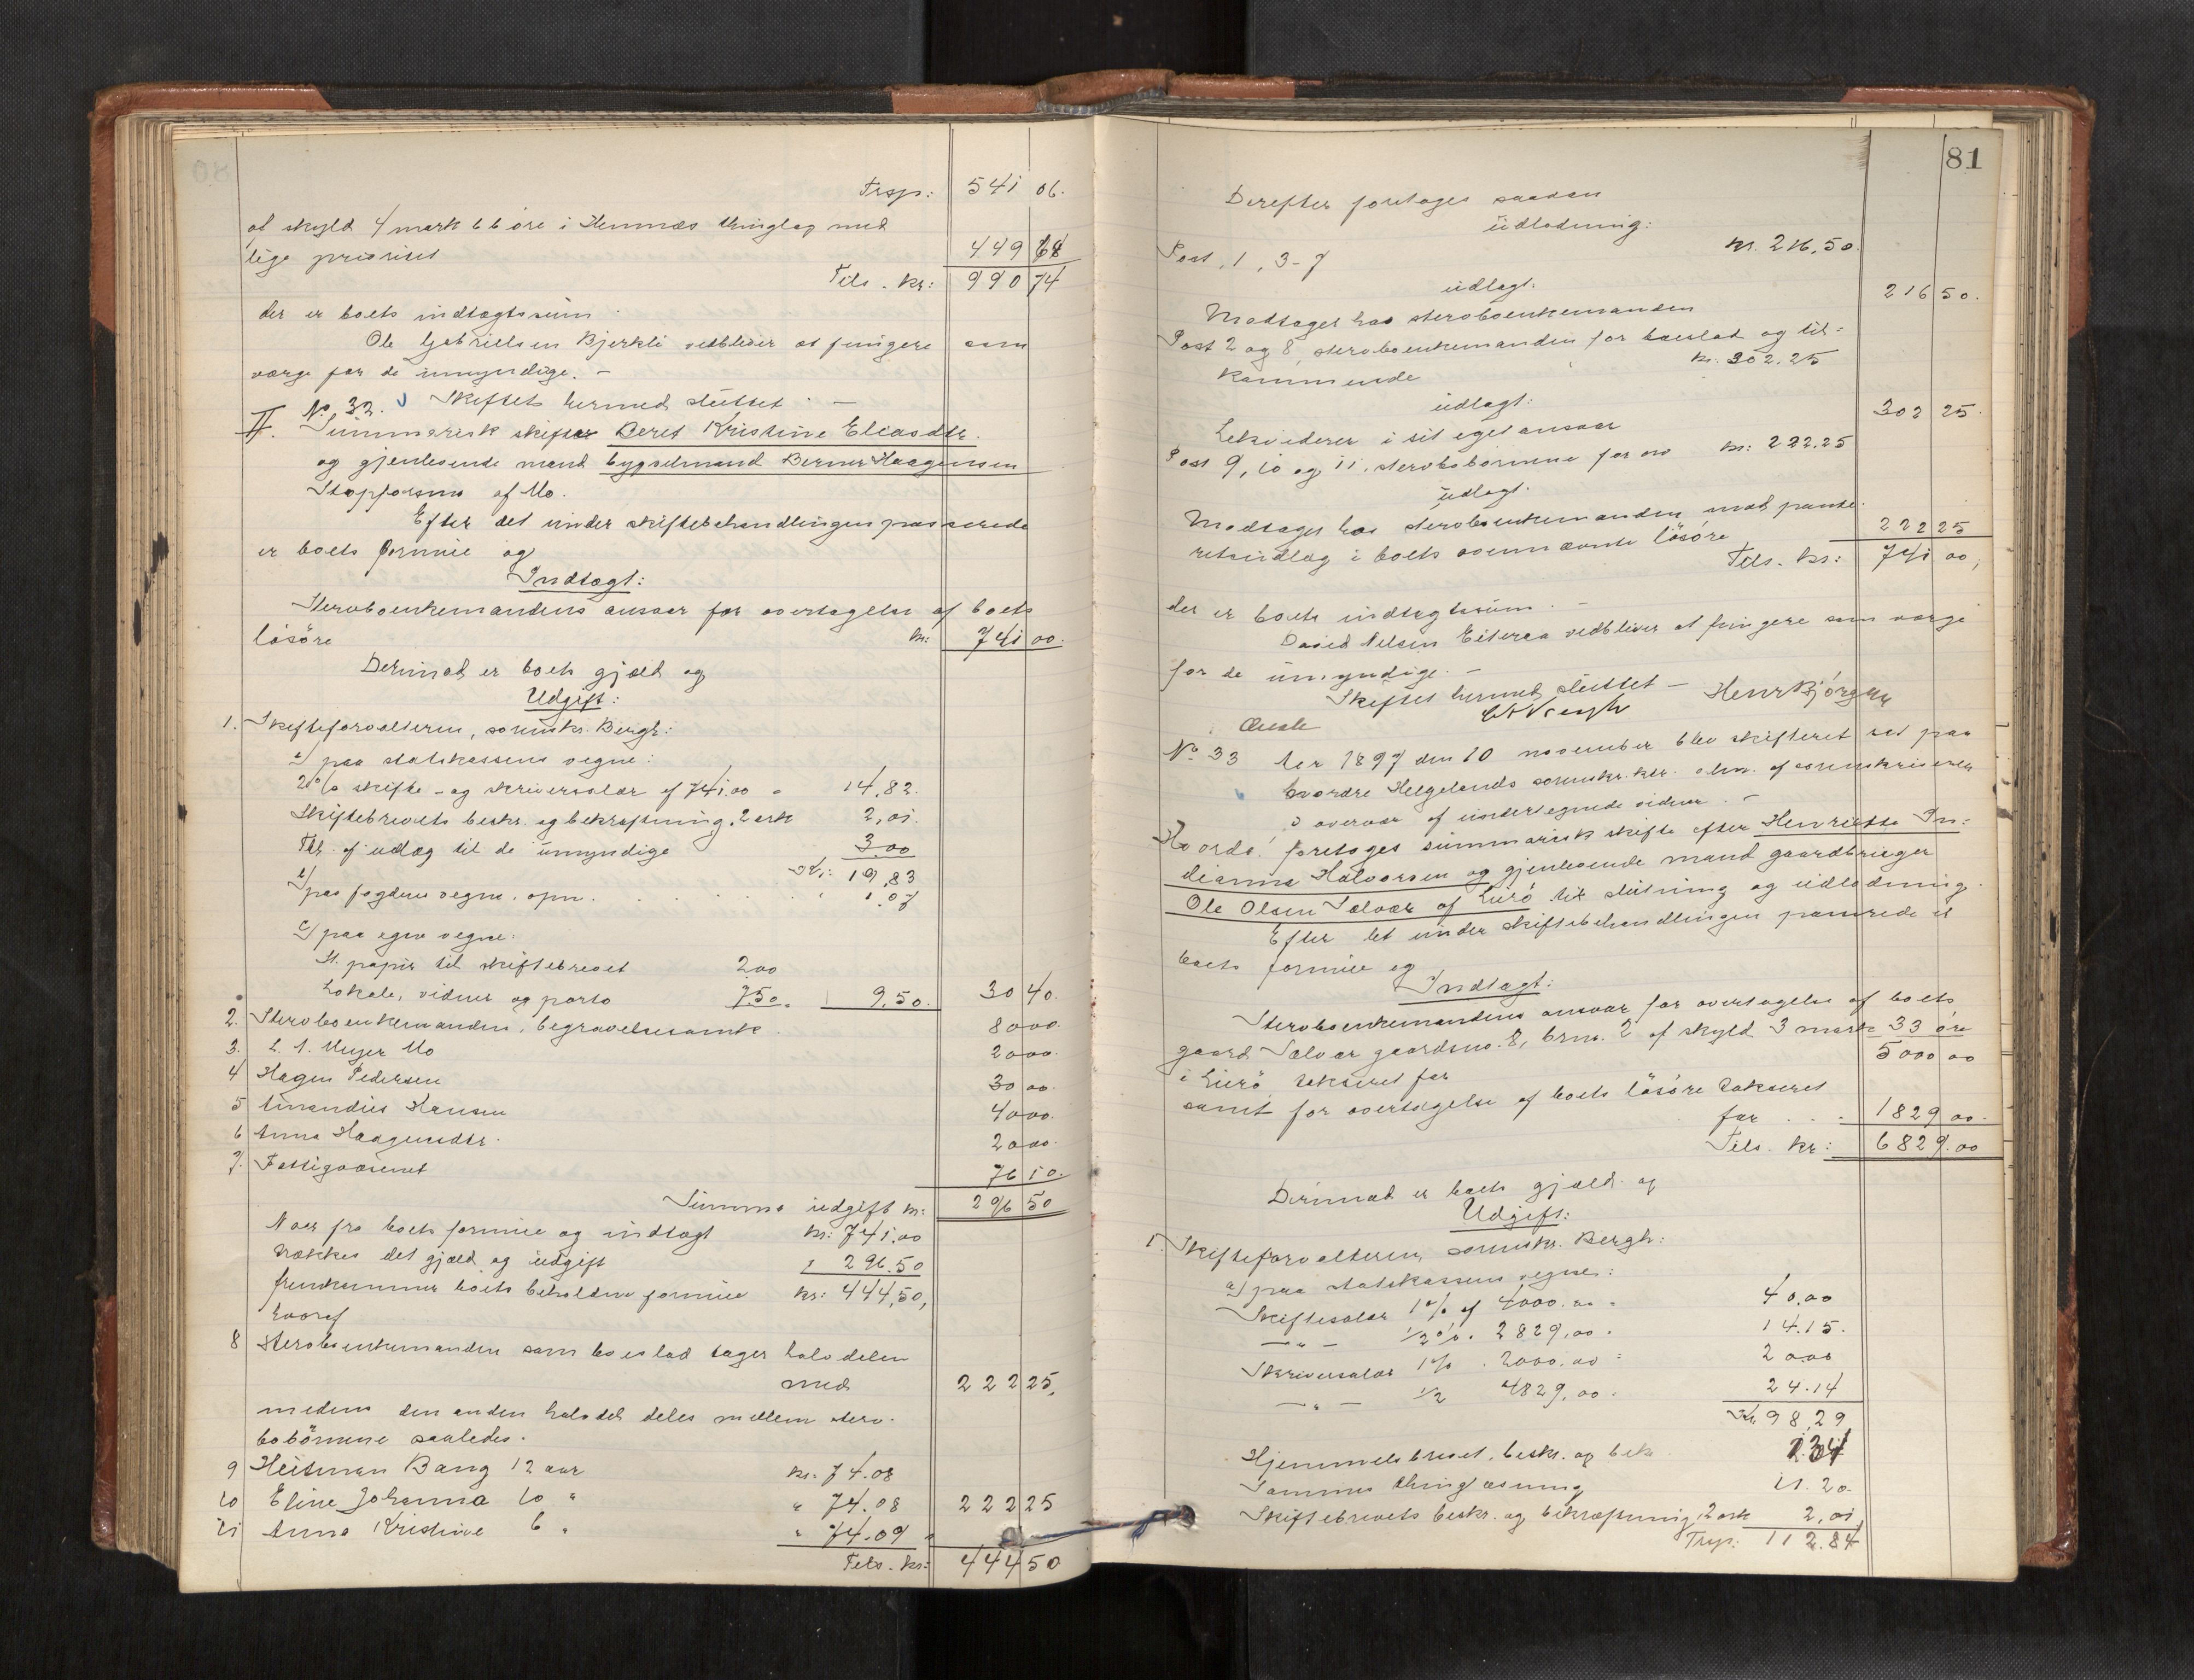 Trsp: 541 06.
af skyld 4 mark 66 øre i Hemnæs thinglag med
lige prioritet 449 68
Tils. kr: 990 74
der er boets indtægtssum.
Ole Gabrielsen Bjerkli vedbliver at fungere som
værge for de umyndige. –
No. 32. Skiftet hermed sluttet. –
II. Summarisk skifte Beret Kristine Eliasdtr.
og gjenlevende mand bygselmand Berner Haagensen
Stopforsmo af Mo.
Efter det under skiftebehandlingen passerede
er boets formue og
Indtægt:
Sterboenkemandens ansvar for overtagelse af boets
løsøre kr: 741 00.
Derimod er boets gjæld og
Udgift:
1. Skifteforvalteren, sorenskr. Bergh:
a) paa statskassens vegne:
2% skifte- og skriversalær af 741.00 " 14,82.
Skiftebrevets beskr. og bekræftning, 2 ark 2,01.
Thl. af udlæg til de umyndige 3.00
19,83
b) paa fogdens vegne. opn. 1.07
c) paa egne vegne:
St. papir til skiftebrevet 2.00
Lokale, vidner og porto 7.50. 9.50. 30 40.
2. Sterboenkemanden, begravelsesomk. 80 00.
3. L. A. Meyer Mo 20 00.
4 Hagen Pedersen 30 00.
5 Amandus Hansen 40 00.
6 Anna Haagensdtr. 20 00.
7. Fattigvæsenet 76 10.
Summa udgift kr: 296 50
Naar fra boets formue og indtægt kr: 741.00
trækkes det gjæld og udgift " 296.50
fremkommer boets beholdne formue kr: 444,50,
hvoraf
8 Sterboenkemanden som boeslod tager halvdelen
med 222 25,
medens den anden halvdel deles mellem sterv-
bobörnene saaledes.
9 Heitman Bang 12 aar kr. 74.08
10 Eline Johanna 10 " " 74.08 222 25
11 Anna Kristine 6 " " 74.09
Tils. kr: 444 50
81
Derefter foretages saadan
udlodning:
Post, 1, 3-7 kr. 216,50.
udlagt:
Modtaget hos sterboenkemanden 216 50.
Post 2 og 8, sterboenkemanden for boeslod og til-
kommende kr. 302.25
udlagt:
Likviderer i sit eget ansvar 302 25.
Post 9, 10 og 11. sterbobörnene for arv kr: 222.25
udlagt.
Modtages hos sterboenkemanden mod pante-
retsindlæg i boets ovennævnte lösöre 222 25
Tils. kr: 741 00,
der er boets indtægtssum. –
David Nilsen Eiteraa vedbliver at fungere som værge
for de umyndige. –
Skiftet hermed sluttet –
Henr Bjørgan
No 33 Aar 1897 den 10 november blev skifteret sat paa
nordre Helgelands sorenskr. ktr. adm. af sorenskriveren
i overvær af undertegnede vidner. –
Hvorda: foretoges summarisk skifte efter Henriette In-
deanna Halvorsen og gjenlevende mand gaardbruger
Ole Olsen Selvær af Lurö til slutning og udlodning.
Efter det under skiftebehandlingen passerede er
boets formue og
Indtægt:
Sterboenkemandens ansvar for overtagelse af boets
gaard Selvær gaardsno. 8, brno. 2 af skyld 3 mark 33 öre
i Lurö takseret for 5000 00
samt for overtagelse af boets lösöre takseret
for 1829 00.
Tils. kr: 6829.00
Derimod er boets gjæld og
Udgift:
1. Skifteforvalteren, sorenskr. Bergh:
a) paa statskassens vegne:
Skiftesalær 1% af 4000.00 " 40.00
— " — ½% " 2829,00 " 14.15.
Skriversalær 1% " 2000.00 " 20.00
— " — ½ 4829,00 " 24.14
Kr 98,29
Hjemmelsbrevet, beskr. og bek. 1.34
Sammes thinglæsning 11.20.
Skiftebrevets beskr. og bekræftning, 2 ark 2,01
Trsp: 112.84